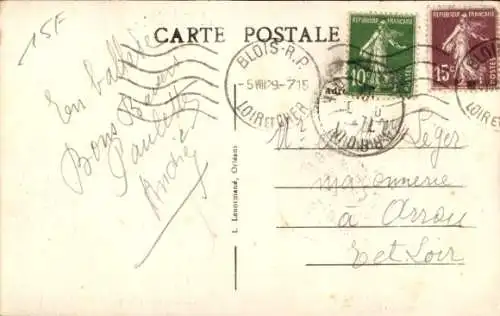 15F
CARTE POSTALE
BLOIS-R.P.
-5 VIII 29-7 15
LOIR ET CHER
REPUBLIQUE FRANÇAISE
10c
REPUBLIQUE FRANÇAISE
15c
POSTES
BLOIS
LOIR ET
En ballade
Bons Baisers
Paulette
André
L. Lenormand, Orléans
M. Léger
maçonnerie
à Arrou
E et Loir